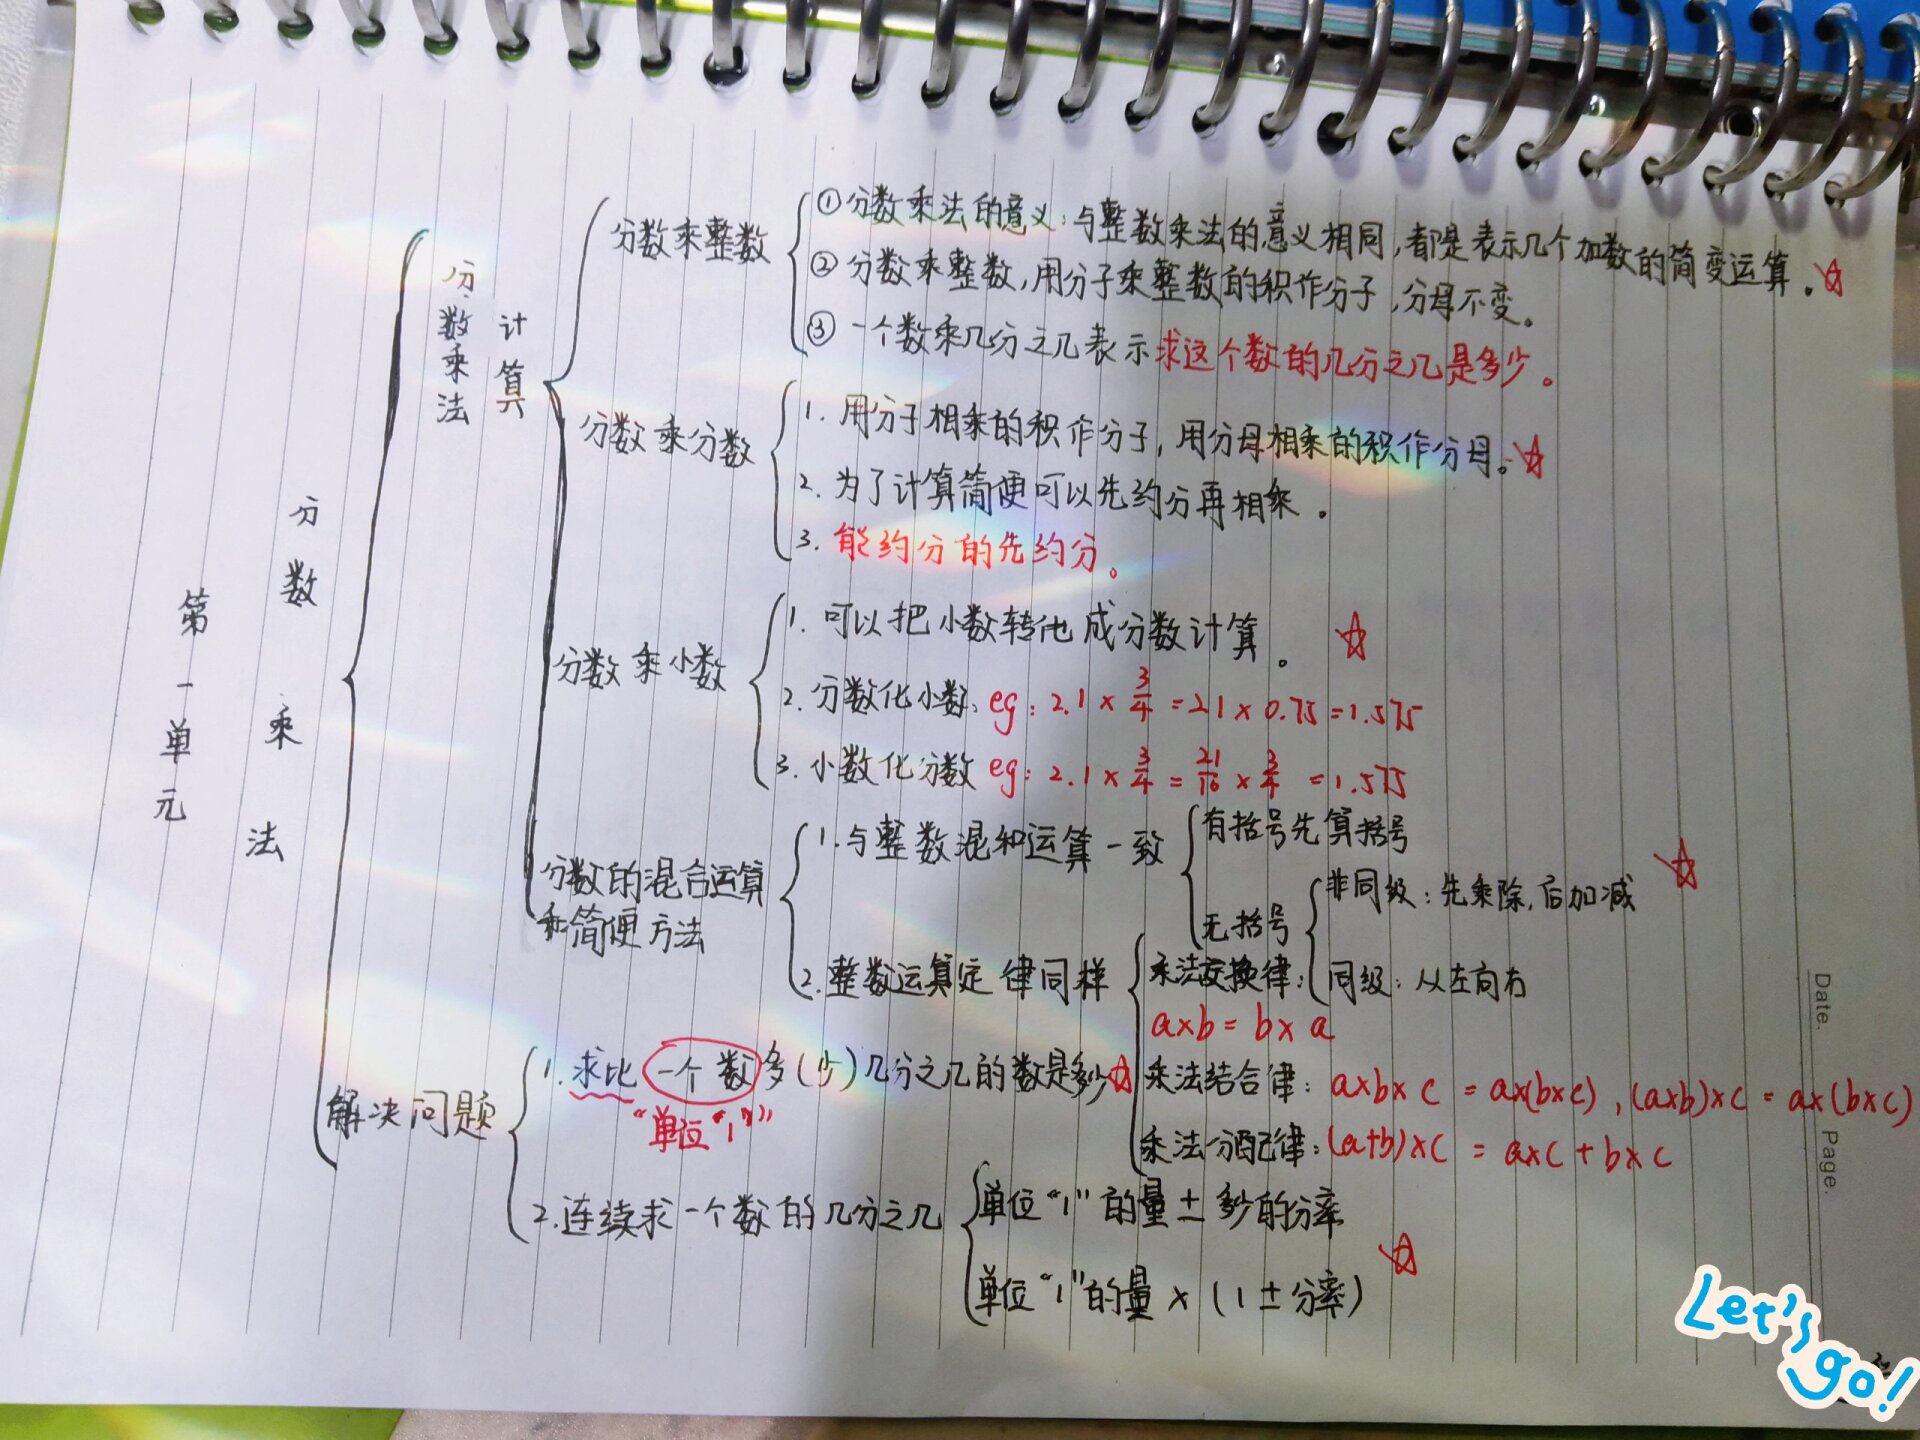 第一单元
分数乘法
分数乘法
计算
分数乘整数
①分数乘法的意义：与整数乘法的意义相同，都是表示几个加数的简变运算。☆
②分数乘整数，用分子乘整数的积作分子，分母不变。
③一个数乘几分之几表示求这个数的几分之几是多少。
分数乘分数
1. 用分子相乘的积作分子，用分母相乘的积作分母。☆
2. 为了计算简便可以先约分再相乘。
3. 能约分的先约分。
分数乘小数
1. 可以把小数转化成分数计算。☆
2. 分数化小数：eg：2.1×3/4=21×0.75=1.575
3. 小数化分数 eg：2.1×3/4=21/10×3/4=1.575
分数的混合运算
和简便方法
1. 与整数混和运算一致
有括号先算括号
无括号
非同级：先乘除，后加减 ☆
同级：从左向右
2. 整数运算定律同样
乘法交换律：
a×b=b×a
乘法结合律：a×b×c=a×(b×c)，(a×b)×c=a×(b×c)
乘法分配律：(a+b)×c=a×c+b×c
解决问题
1. 求比一个数多(少)几分之几的数是多少☆
"单位"1""
2. 连续求一个数的几分之几
单位"1"的量±多少的分率
单位"1"的量×(1±分率) ☆
Date.
Page.
Let's
go!